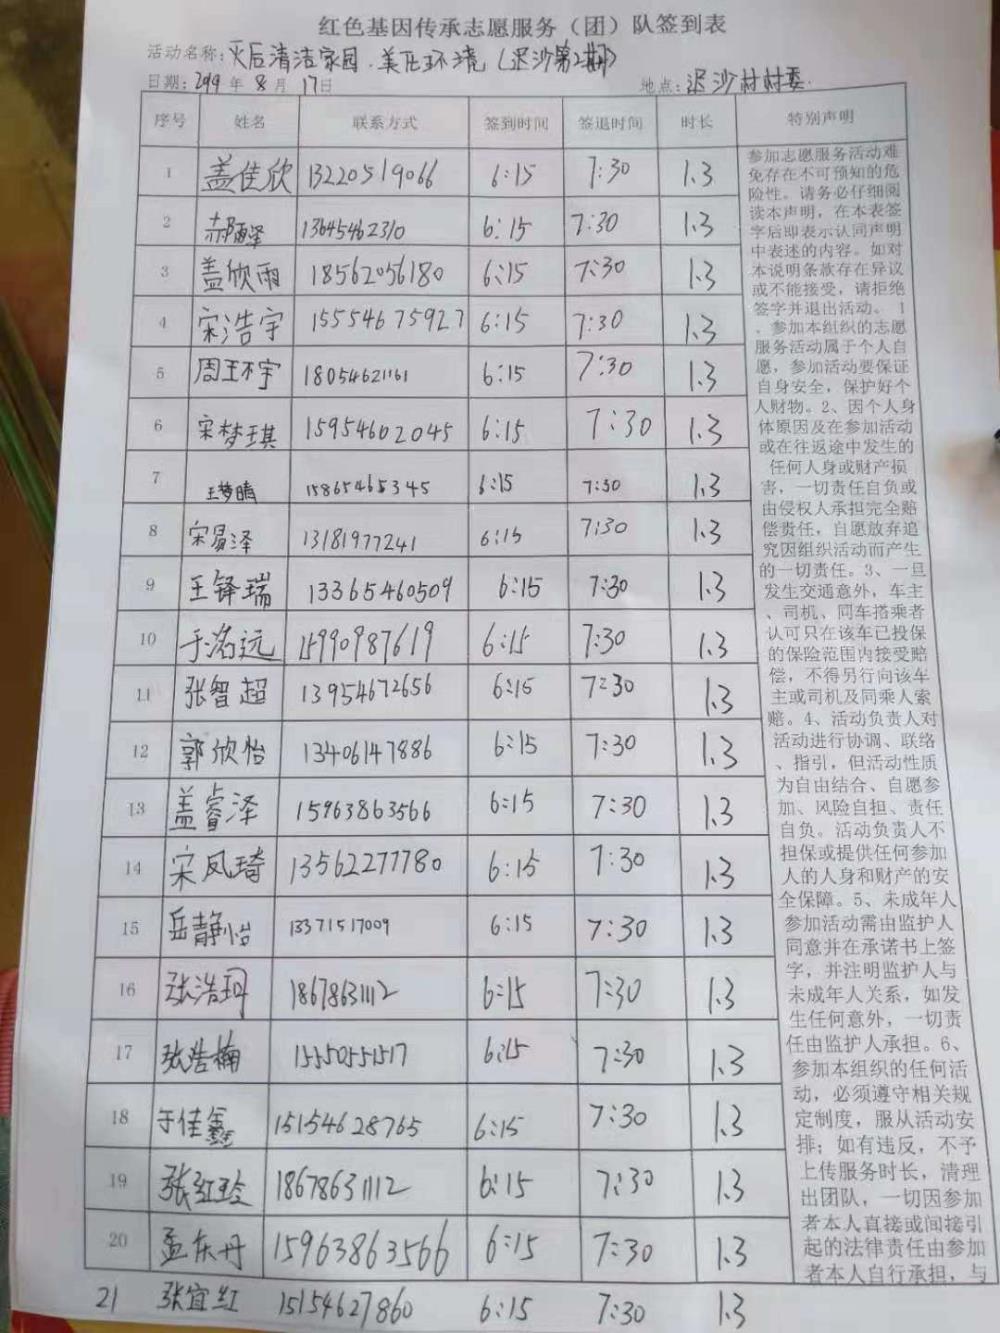 红色基因传承志愿服务（团）队签到表
活动名称：灾后清洁家园.美化环境（迟沙第2期）
日期：2019年8月17日 地点：迟沙村村委.
序号 姓名 联系方式 签到时间 签退时间 时长 特别声明
1 盖佳欣 13220519066 6:15 7:30 1.3
2 郝雨泽 13645462310 6:15 7:30 1.3
3 盖欣雨 18562056180 6:15 7:30 1.3
4 宋浩宇 15554675927 6:15 7:30 1.3
5 周王不宇 18054621161 6:15 7:30 1.3
6 宋梦琪 15954602045 6:15 7:30 1.3
7 王梦晴 15865465345 6:15 7:30 1.3
8 宋易泽 13181977241 6:15 7:30 1.3
9 王铎瑞 13365460509 6:15 7:30 1.3
10 于洺远 15990987619 6:15 7:30 1.3
11 张智超 13954672656 6:15 7:30 1.3
12 郭欣怡 13406147886 6:15 7:30 1.3
13 盖睿泽 15963863566 6:15 7:30 1.3
14 宋凤琦 13562277780 6:15 7:30 1.3
15 岳静怡 13371517009 6:15 7:30 1.3
16 张浩玥 18678631112 6:15 7:30 1.3
17 张浩楠 15550551517 6:15 7:30 1.3
18 于佳鑫 15154628765 6:15 7:30 1.3
19 张红玲 18678631112 6:15 7:30 1.3
20 孟东丹 15963863566 6:15 7:30 1.3
21 张宜红 15154627860 6:15 7:30 1.3
参加志愿服务活动难
免存在不可预知的危
险性。请务必仔细阅
读本声明，在本表签
字后即表示认同声明
中表述的内容。如对
本说明条款存在异议
或不能接受，请拒绝
签字并退出活动。 1
、参加本组织的志愿
服务活动属于个人自
愿，参加活动要保证
自身安全，保护好个
人财物。2、因个人身
体原因及在参加活动
或在往返途中发生的
任何人身或财产损
害，一切责任自负或
由侵权人承担完全赔
偿责任，自愿放弃追
究因组织活动而产生
的一切责任。3、一旦
发生交通意外，车主
、司机、同车搭乘者
认可只在该车已投保
的保险范围内接受赔
偿，不得另行向该车
主或司机及同乘人索
赔。4、活动负责人对
活动进行协调、联络
、指引，但活动性质
为自由结合、自愿参
加、风险自担、责任
自负。活动负责人不
担保或提供任何参加
人的人身和财产的安
全保障。5、未成年人
参加活动需由监护人
同意并在承诺书上签
字，并注明监护人与
未成年人关系，如发
生任何意外，一切责
任由监护人承担。6、
参加本组织的任何活
动，必须遵守相关规
定制度，服从活动安
排；如有违反，不予
上传服务时长，清理
出团队，一切因参加
者本人直接或间接引
起的法律责任由参加
者本人自行承担，与